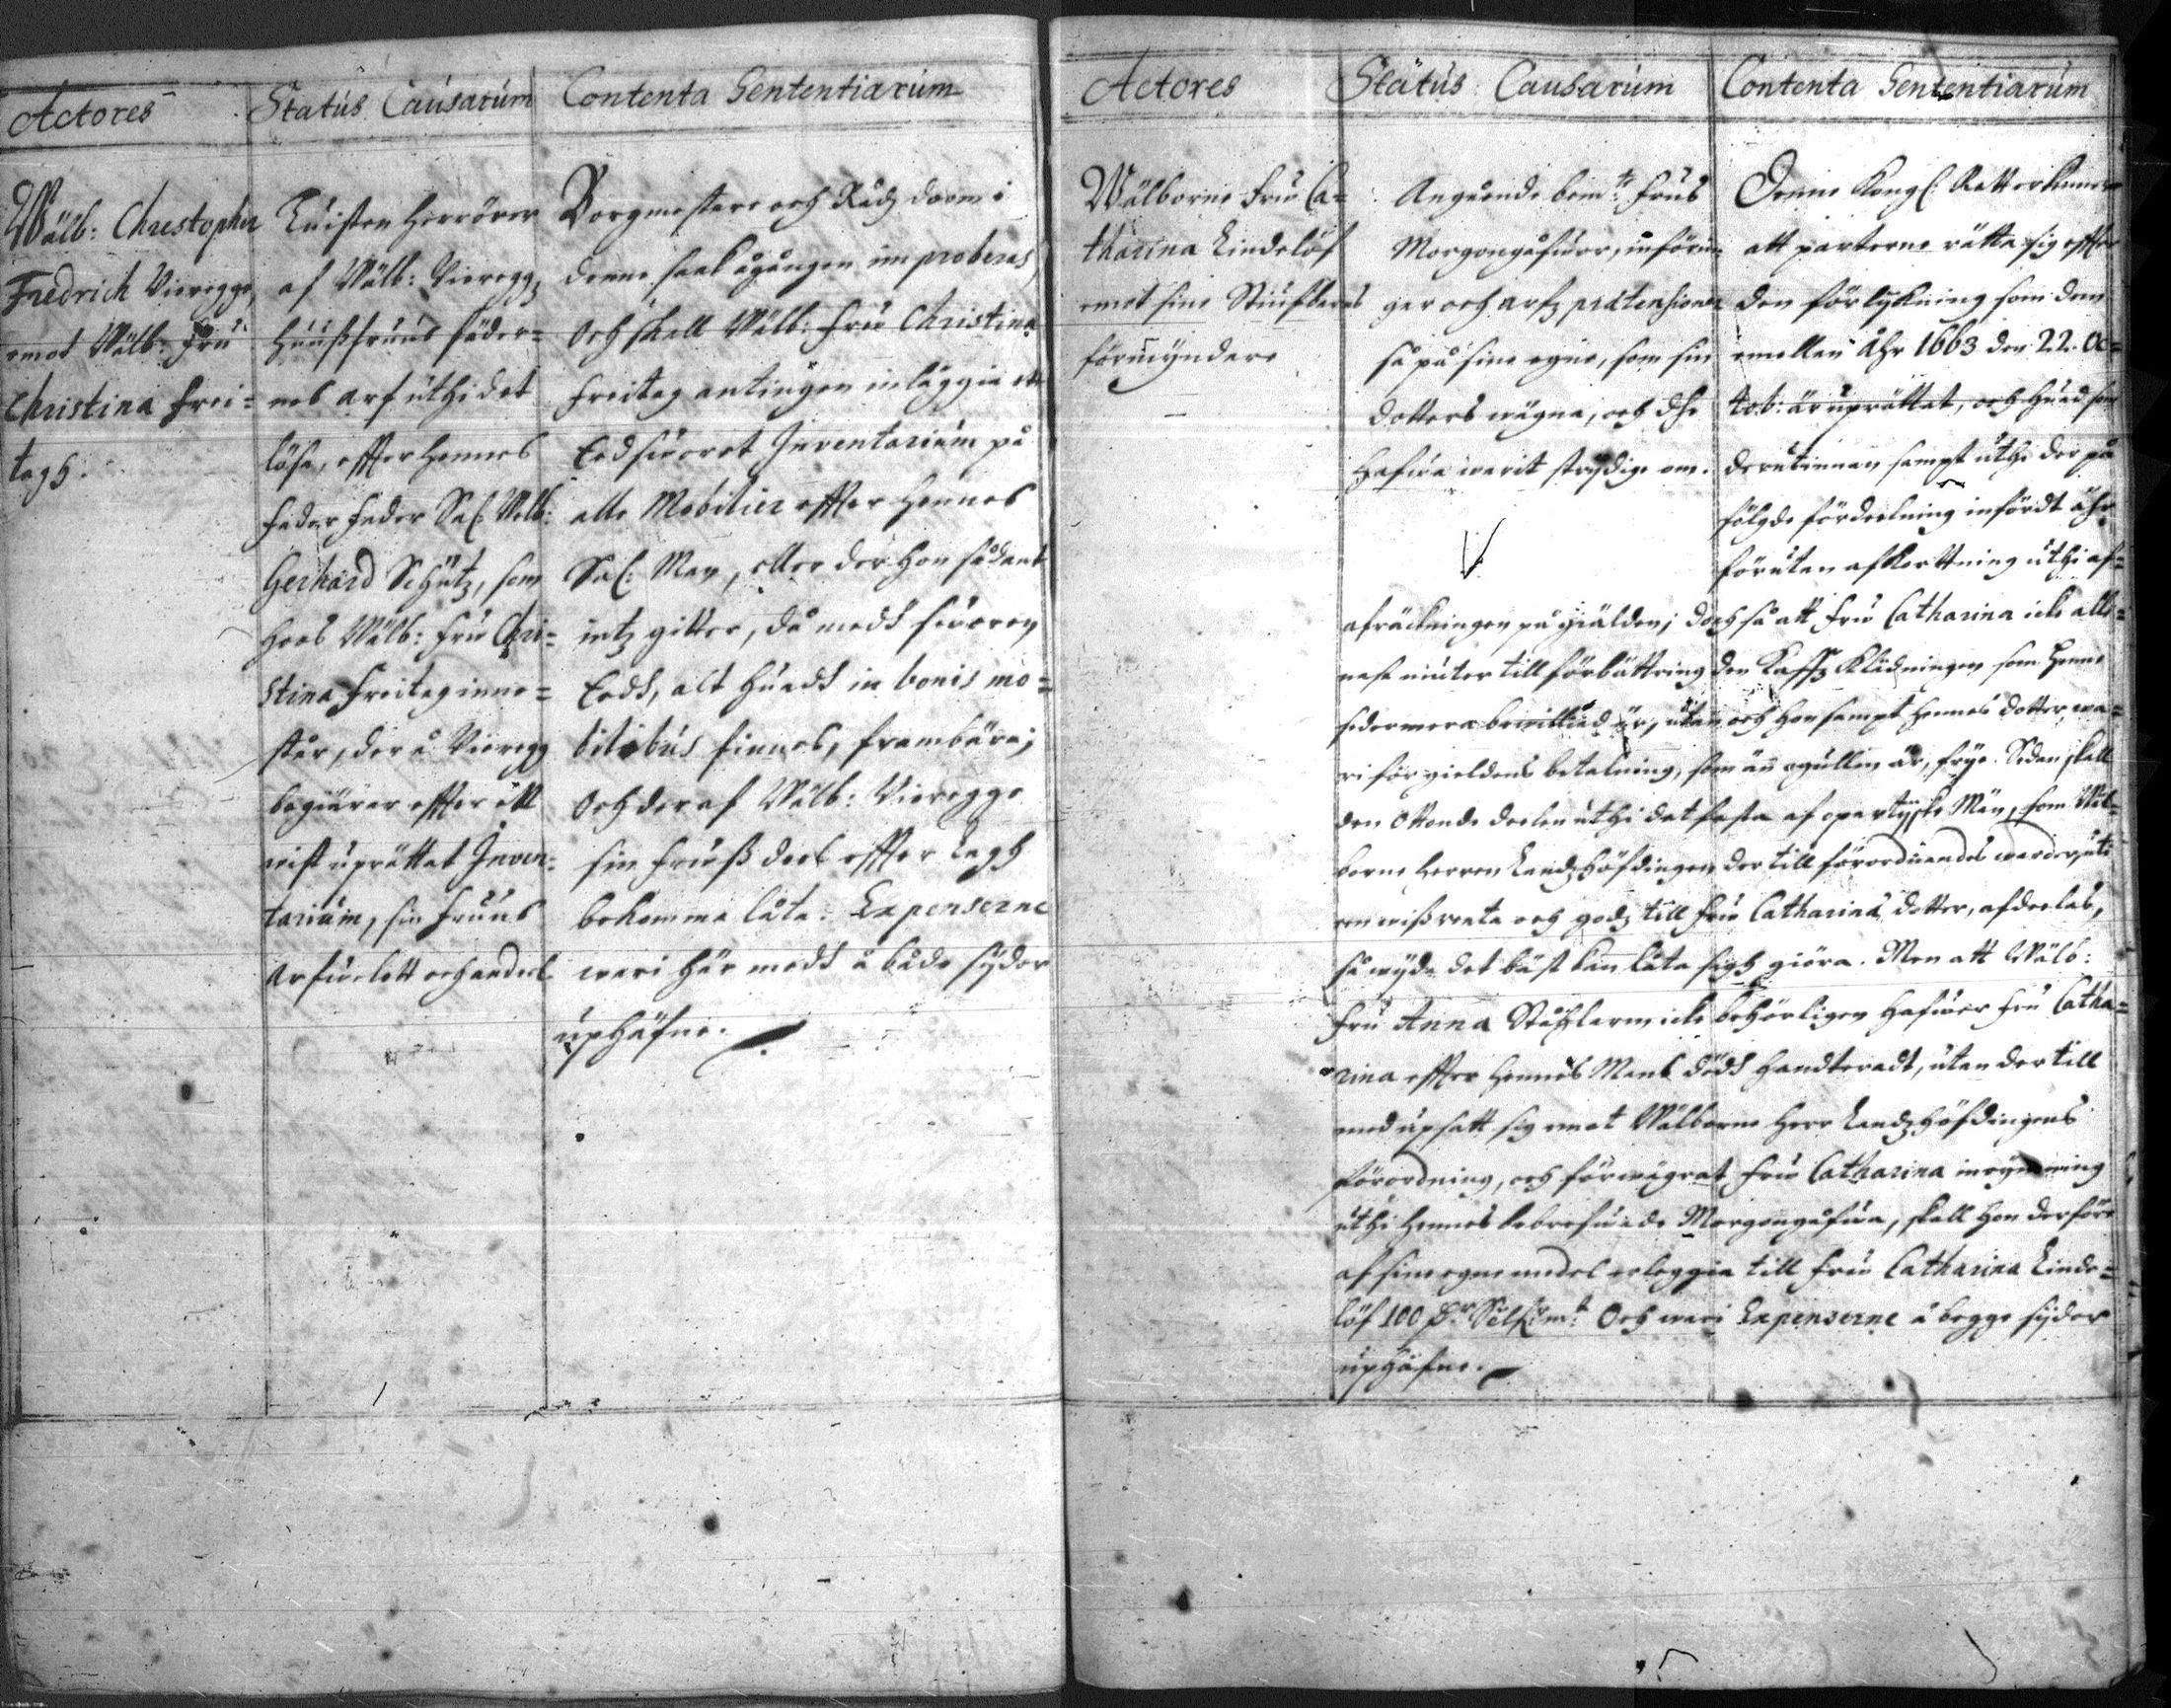 Actores
Status Causarum
Contenta Sententiarum
Wälb: Christopher
Fredrich Vieregge,
emot Wälb: Fru
Christina Frei=
tagh.
Tuisten herrörer
af Wälb: Vieregg
huusfruus fäder=
nes arf uthi det
lösa, effter hennes
fader fader Sal: Welb:
Gerhard Schütz, som
hoos Wälb: Fru Chri=
stina Freitag inne=
står, der å Vieregg
begiärer effter ett
wist uprättat Inven=
tarium, sin fruus
Arfwelott och andeel
Borgmestare och Rådz doom i
denne saak ågången improberas,
Och skall Wälb: Fru Christina
Freitag antingen inläggia ett
Eedsworet Inventarium på
alle Mobilier effter hennes
Sal: Man, eller der hon sådant
intz gitter, då medh sworen
Eedh, alt huadh in bonis mo=
bilibus finnes, frambära;
Och deraf Wälb: Vieregge
sin fruus deel effter Lagh
bekomma låta: Expenserne
wari här medh å både sijdor
uphäfne.
Actores
Status Causarum
Contenta Sententiarum
Wälborne Fru Ca=
tharina Lindelöf
emot sine Stiufbarns
förmyndare
Angående bem:te Frus
Morgongåfwor, införin=
gar och arfz prætensioner
så på sine egne, som sin
dotters wägna, och dhe
hafwa warit strydige om.
Denne Kongl: Rätt erkänner
att parterne rätta sig effter
den förlijkning som dem
emellan Åhr 1663 den 22. Oc=
tob: är uprättat, och huad som
derutinnan sampt uthi der på
fölgde fördeelning infördt ähr
förutan afkorttning uthi af=
afräckningen på giälden; doch så att Fru Catharina icke alle=
nast niuter till förbättring den Kledningen som henne
sedermera bewilliad är, utan och hon sampt hennes dotter wa=
ri för gieldens betalning, som än ogullen är, frye. Sedan skall
den Ottonde deelen uthi det fasta af opartijske Män, som Wäl=
borne Herren Landzhöfdingen der till förordnandes warder, uti
een wiss renta och godz till Fru Catharina dotter, afdeelas,
så wijda det bäst kan låta sigh giöra. Men att Wälb:
Fru Anna icke behörligen hafwer Fru Catha=
rina effter hennes Mans dödh handteradt, utan der till
med upsatt sig emot Wälborne Herr Landzhöfdingens
förordning, och förwägrat Fru Catharina inrymning
uthi hennes Morgongåfwa, skall hon derföre
af sine egne medel erleggia till Fru Catharina Linde=
löf 100 Dr Sölf:mt: Och wari Expenserne å begge sijdor
uphäfne.